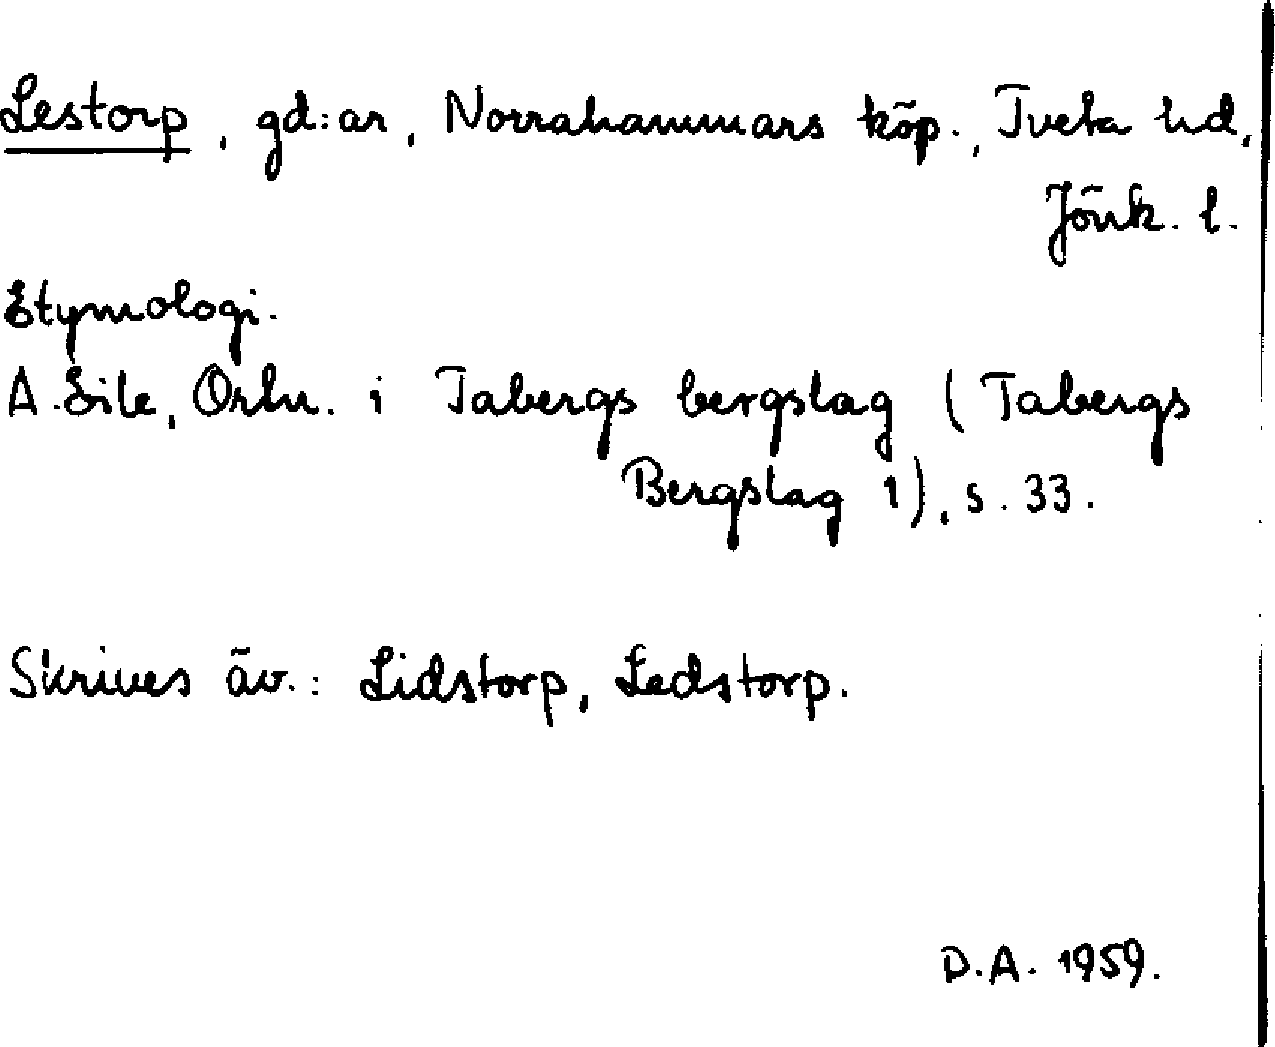 Lestorp, gd:ar, Norrahammars köp., Tveta hd,
Jönk. l.
Etymologi.
A. Lile, Ortn. i Tabergs bergslag (Tabergs
Bergslag 1), s. 33.
Skrives äv.: Lidstorp, Ledstorp.
D.A. 1959.